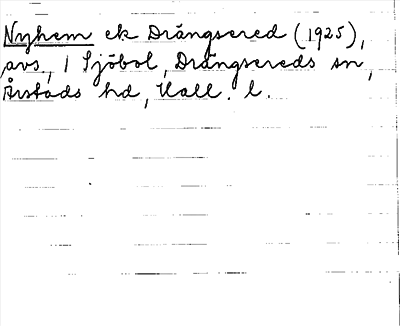 Nyhem ek Drängsered (1925),
avs. / Sjöbol, Drängsereds sn,
Årstads hd, Hall. l.